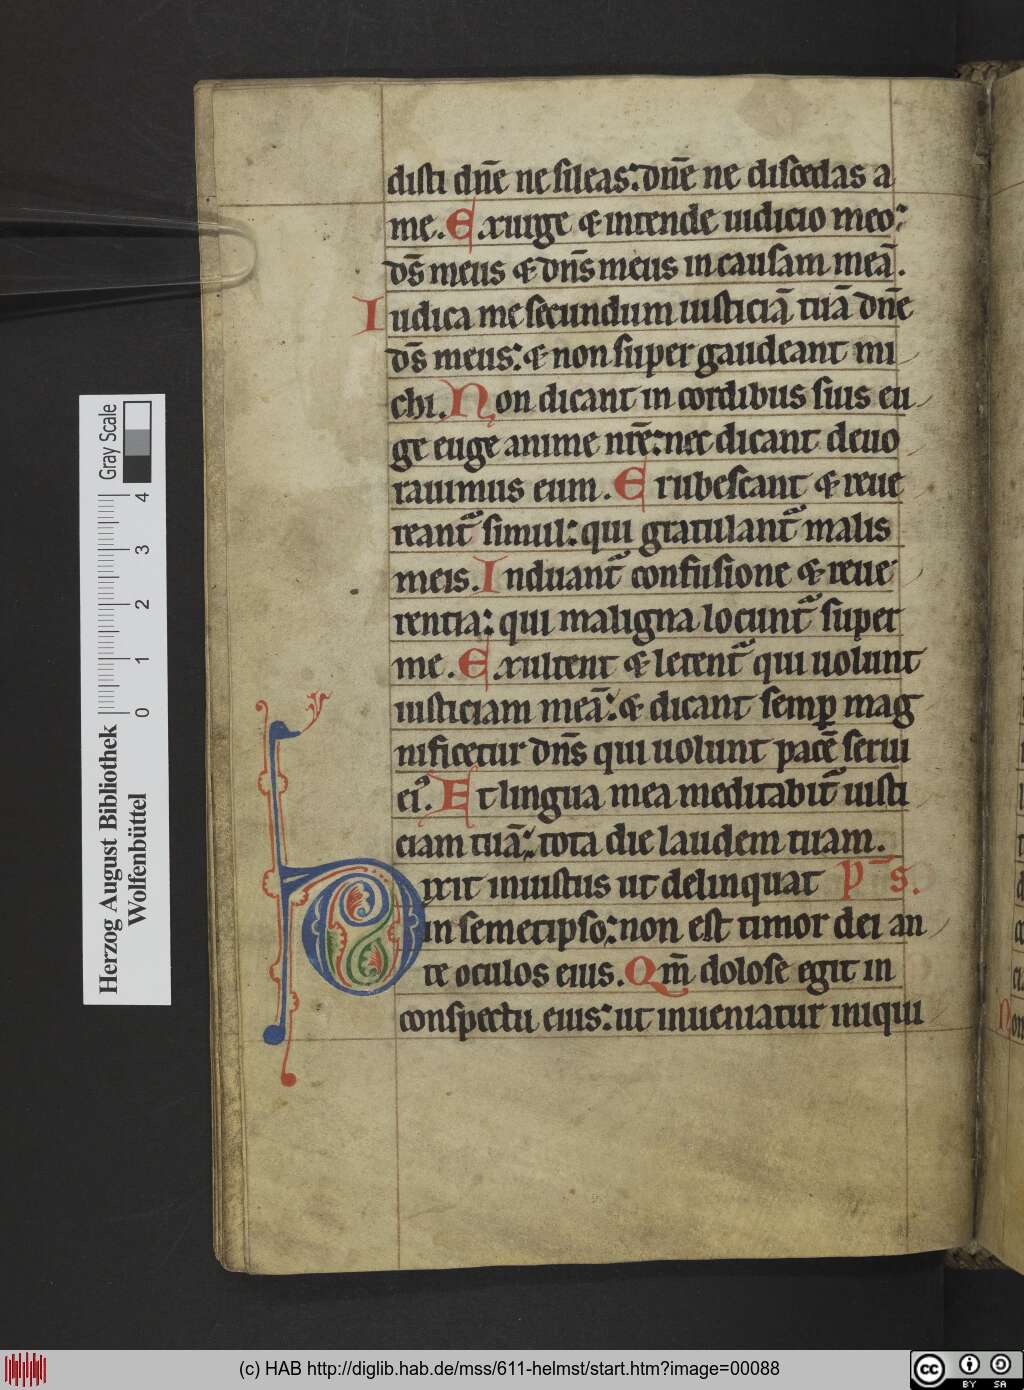 disti dn̄e ne sileas: dn̄e ne discedas a
me. Exurge & intende iudicio meo:
ds̄ meus & dn̄s meus in causam meā.
Iudica me secundum iusticiā tuā dn̄e
ds̄ meus: & non supergaudeant mi
chi. Non dicant in cordibus suis eu
ge euge anime nr̄e: nec dicant deuo
rauimus eum. Erubescant & reue
reant᷑ simul: qui gratulant᷑ malis
meis. Induant᷑ confusione & reue
rentia: qui maligna locunt᷑ super
me. Exultent & letent᷑ qui uolunt
iusticiam meā: & dicant semp̱ mag
nificetur dn̄s qui uolunt pacē serui
eiꝰ. Et lingua mea meditabit᷑ iusti
ciam tuā: tota die laudem tuam.
Dixit iniustus ut delinquat p̄s.
in semetipso: non est timor dei an
te oculos eius. Qm̄ dolose egit in
conspectu eius: ut inueniatur iniqui
Gray Scale
0 1 2 3 4
Herzog August Bibliothek
Wolfenbüttel
(c) HAB http://diglib.hab.de/mss/611-helmst/start.htm?image=00088
cc BY SA